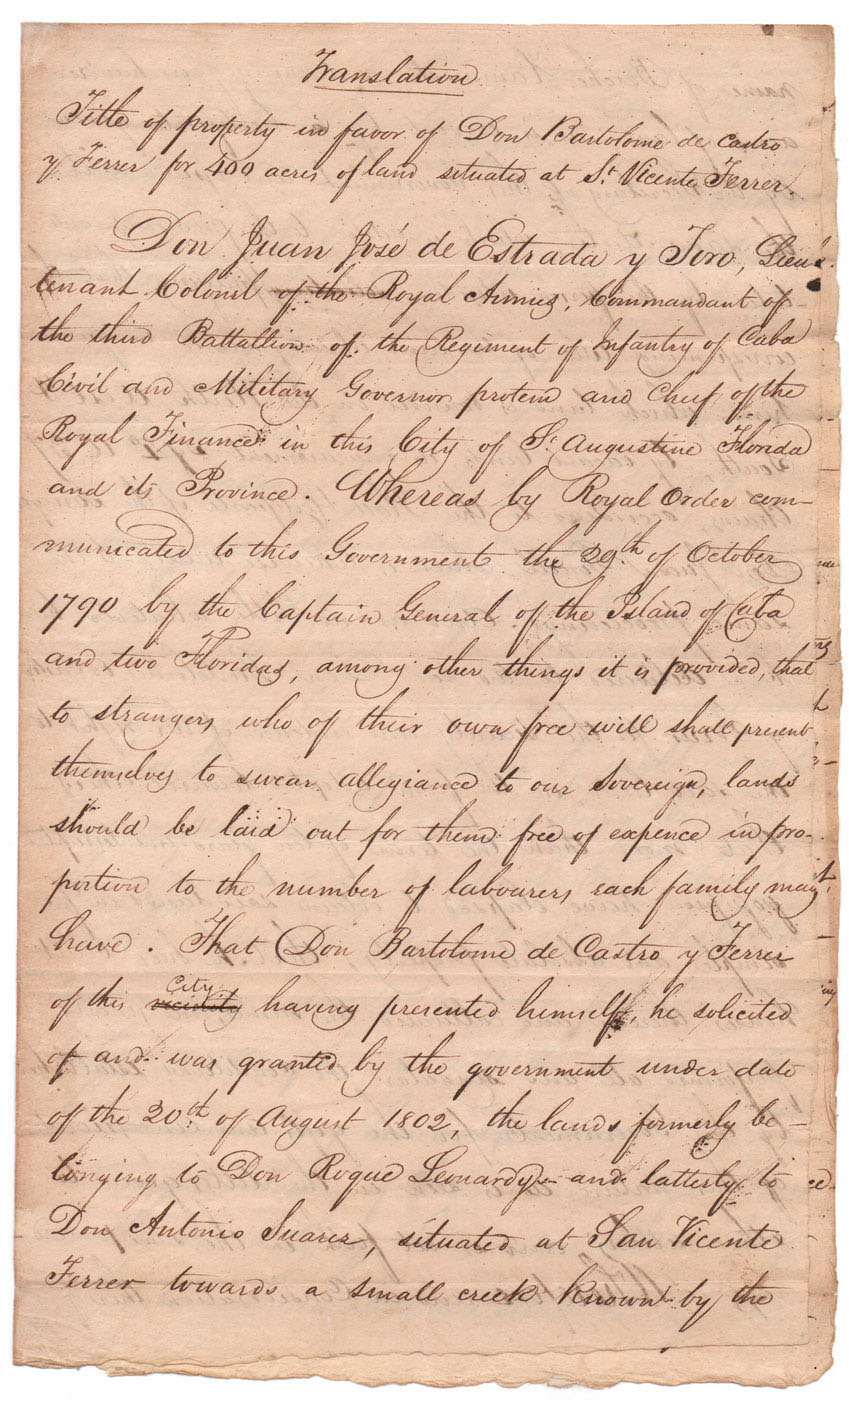 Translation
Title of property in favor of Don Bartolome de Castro
y Ferrer for 400 acres of land situated at St. Vicente Ferrer.
Don Juan José de Estrada y Toro, Lieu-
tenant Colonil of the Royal Armies, Commandant of
the third Battallion of the Regiment of Infantry of Cuba
Civil and Military Governor protem and Cheif of the
Royal Finance in this City of St. Augustine Florida
and its Province. Whereas by Royal Order com-
municated to this Government the 29th. of October
1790 by the Captain General of the Island of Cuba
and two Floridas, among other things it is provided, that
to strangers who of their own free will shall present
themselves to swear allegiance to our Sovereign, lands
should be laid out for them free of expence in pro-
portion to the number of labourers each family may
have. That Don Bartolome de Castro y Ferrer
City
of this vicinity having presented himself, he solicited
of and was granted by the government under date
of the 20th. of August 1802, the lands formerly be-
longing to Don Roque Leonardy and latterly to
Don Antonio Suarez, situated at San Vicente
Ferrer towards a small creek known by the